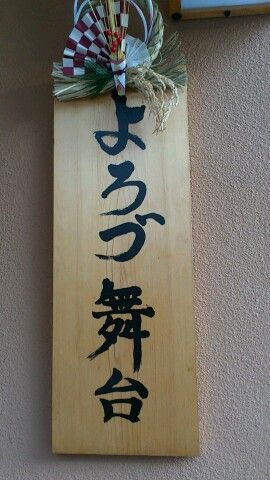 よろづ舞台